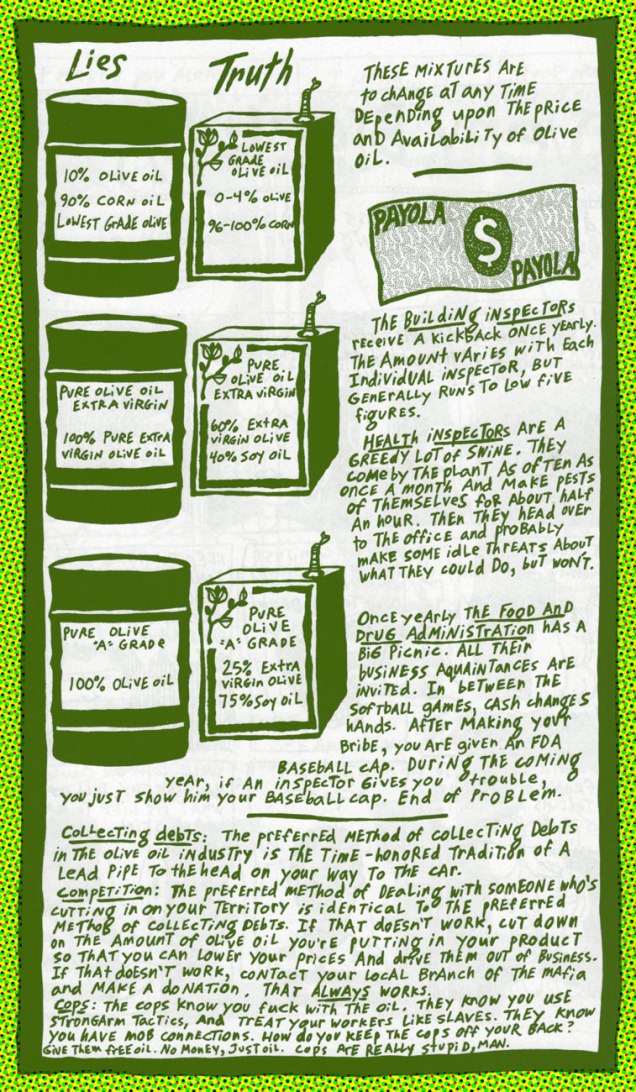 Lies
Truth
10% OLIVE OIL
90% CORN OIL
LOWEST GRADE OLIVE
LOWEST
GRADE
OLIVE OIL
0-4% OLIVE
96-100% CORN
PURE OLIVE OIL
EXTRA VIRGIN
100% PURE EXTRA
VIRGIN OLIVE OIL
PURE
OLIVE OIL
EXTRA VIRGIN
60% EXTRA
VIRGIN OLIVE
40% SOY OIL
PURE OLIVE
"A" GRADE
100% OLIVE OIL
PURE
OLIVE
"A" GRADE
25% EXTRA
VIRGIN OLIVE
75% SOY OIL
THESE MIXTURES ARE
to CHANGE AT ANY TIME
DEPENDING UPON THE PRICE
AND AVAILABILITY OF OLIVE
OIL.
PAYOLA
$
PAYOLA
THE BUILDING INSPECTORS
RECEIVE A KICKBACK ONCE YEARLY.
THE AMOUNT VARIES WITH EACH
INDIVIDUAL INSPECTOR, BUT
GENERALLY RUNS TO LOW FIVE
FIGURES.
HEALTH INSPECTORS ARE A
GREEDY LOT OF SWINE. THEY
COME BY THE PLANT AS OFTEN AS
ONCE A MONTH AND MAKE PESTS
OF THEMSELVES FOR ABOUT HALF
AN HOUR. THEN THEY HEAD OVER
TO THE OFFICE AND PROBABLY
MAKE SOME IDLE THREATS ABOUT
WHAT THEY COULD DO, BUT WON'T.
ONCE YEARLY THE FOOD AND
DRUG ADMINISTRATION HAS A
BIG PICNIC. ALL THEIR
BUSINESS AQUAINTANCES ARE
INVITED. IN BETWEEN THE
SOFTBALL GAMES, CASH CHANGES
HANDS. AFTER MAKING YOUR
BRIBE, YOU ARE GIVEN AN FDA
BASEBALL CAP. DURING THE COMING
YEAR, IF AN INSPECTOR GIVES YOU TROUBLE,
YOU JUST SHOW HIM YOUR BASEBALL CAP. END OF PROBLEM.
COLLECTING DEBTS: THE PREFERRED METHOD OF COLLECTING DEBTS
IN THE OLIVE OIL INDUSTRY IS THE TIME-HONORED TRADITION OF A
LEAD PIPE TO THE HEAD ON YOUR WAY TO THE CAR.
COMPETITION: THE PREFERRED METHOD OF DEALING WITH SOMEONE WHO'S
CUTTING IN ON YOUR TERRITORY IS IDENTICAL TO THE PREFERRED
METHOD OF COLLECTING DEBTS. IF THAT DOESN'T WORK, CUT DOWN
ON THE AMOUNT OF OLIVE OIL YOU'RE PUTTING IN YOUR PRODUCT
SO THAT YOU CAN LOWER YOUR PRICES AND DRIVE THEM OUT OF BUSINESS.
IF THAT DOESN'T WORK, CONTACT YOUR LOCAL BRANCH OF THE MAFIA
AND MAKE A DONATION. THAT ALWAYS WORKS.
COPS: THE COPS KNOW YOU FUCK WITH THE OIL. THEY KNOW YOU USE
STRONGARM TACTICS, AND TREAT YOUR WORKERS LIKE SLAVES. THEY KNOW
YOU HAVE MOB CONNECTIONS. HOW DO YOU KEEP THE COPS OFF YOUR BACK?
GIVE THEM FREE OIL. NO MONEY, JUST OIL. COPS ARE REALLY STUPID, MAN.